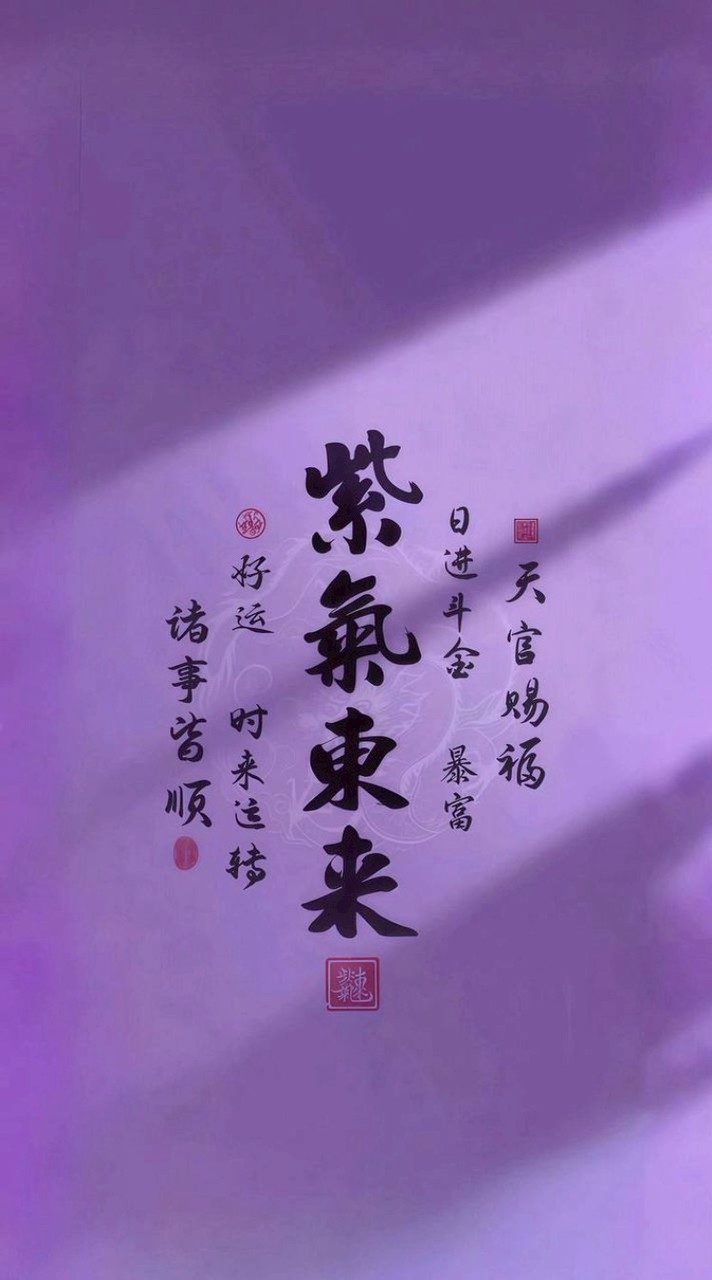 天官赐福
日进斗金 暴富
紫氣東来
好运 时来运转
诸事皆顺